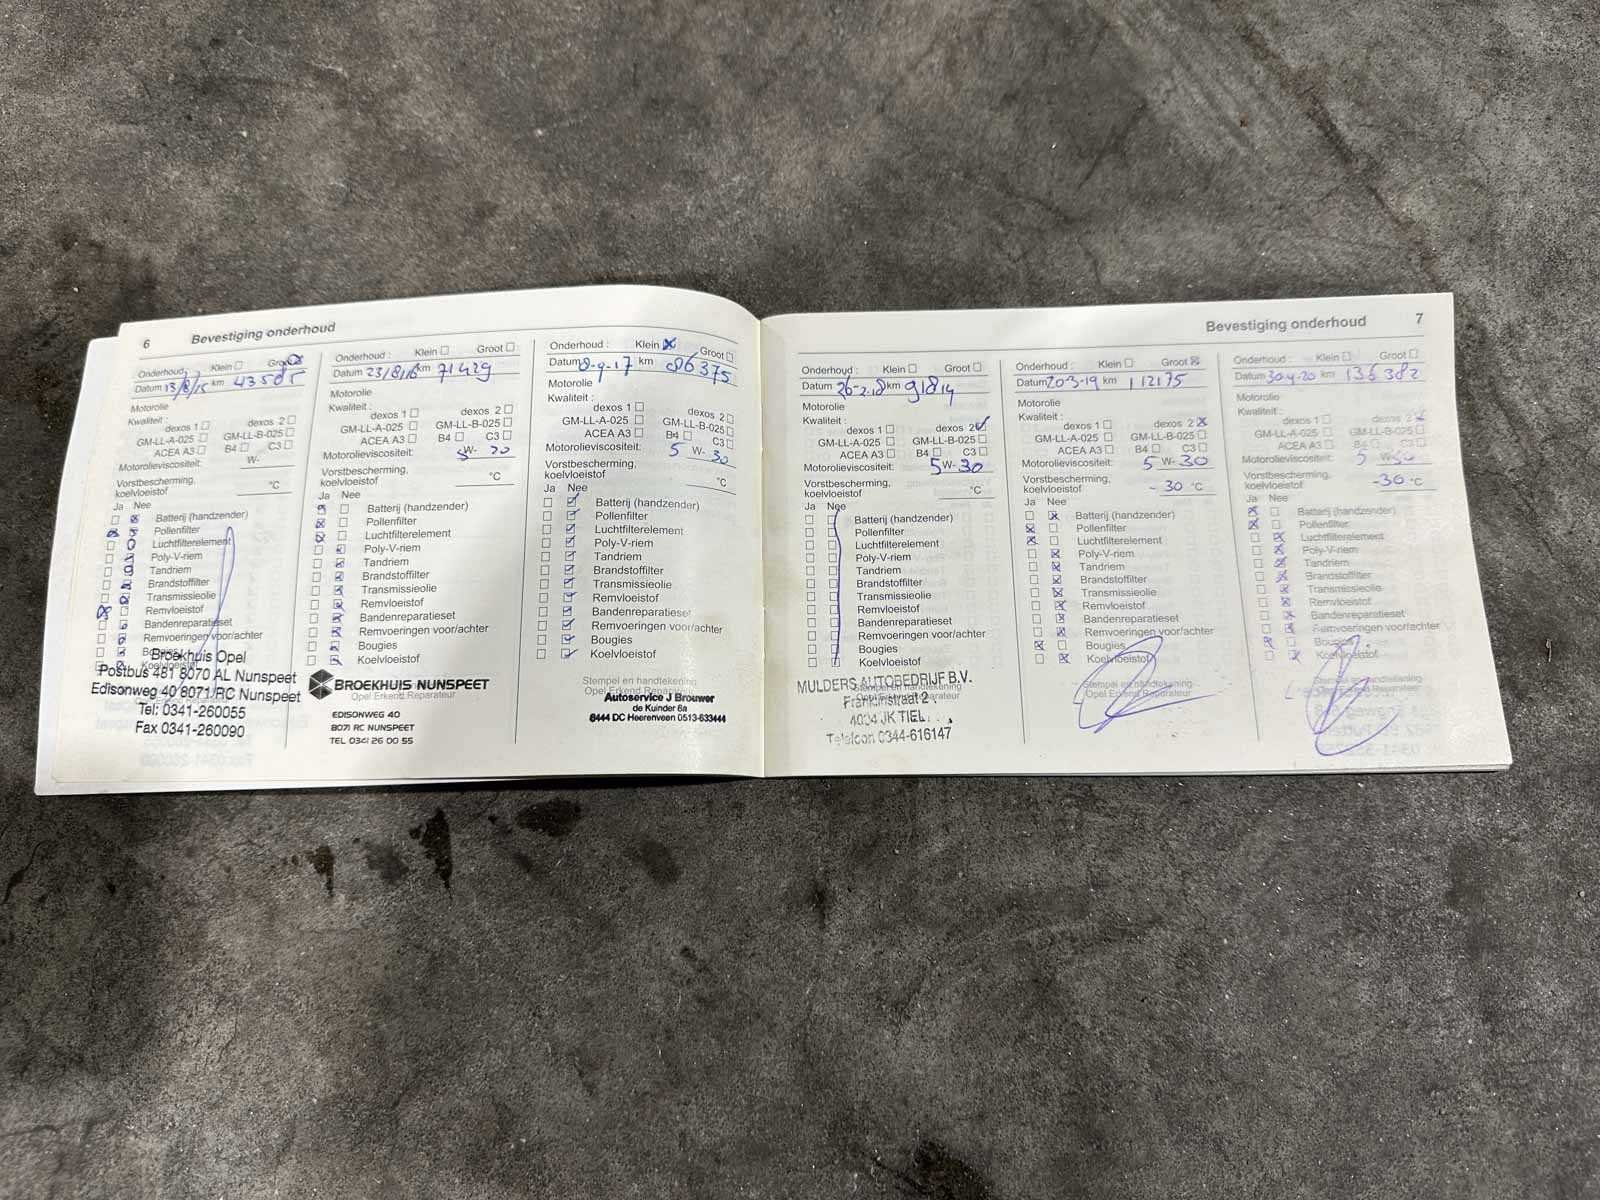 6 Bevestiging onderhoud
Onderhoud: Klein Groot
Datum 13/8/15 km 43585
Motorolie
Kwaliteit :
dexos 1 dexos 2
GM-LL-A-025 GM-LL-B-025
ACEA A3 B4 C3
Motorolieviscositeit: W-
Vorstbescherming,
koelvloeistof °C
Ja Nee
Batterij (handzender)
Pollenfilter
Luchtfilterelement
Poly-V-riem
Tandriem
Brandstoffilter
Transmissieolie
Remvloeistof
Bandenreparatieset
Remvoeringen voor/achter
Bougies
Koelvloeistof
Broekhuis Opel
Postbus 481 8070 AL Nunspeet
Edisonweg 40 8071 RC Nunspeet
Tel: 0341-260055
Fax 0341-260090
Onderhoud : Klein Groot
Datum 23/8/16 km 71429
Motorolie
Kwaliteit :
dexos 1 dexos 2
GM-LL-A-025 GM-LL-B-025
ACEA A3 B4 C3
Motorolieviscositeit: 5 W- 30
Vorstbescherming,
koelvloeistof °C
Ja Nee
Batterij (handzender)
Pollenfilter
Luchtfilterelement
Poly-V-riem
Tandriem
Brandstoffilter
Transmissieolie
Remvloeistof
Bandenreparatieset
Remvoeringen voor/achter
Bougies
Koelvloeistof
BROEKHUIS NUNSPEET
Opel Erkend Reparateur
EDISONWEG 40
8071 RC NUNSPEET
TEL 0341 26 00 55
Onderhoud : Klein Groot
Datum 8-9-17 km 86375
Motorolie
Kwaliteit :
dexos 1 dexos 2
GM-LL-A-025 GM-LL-B-025
ACEA A3 B4 C3
Motorolieviscositeit: 5 W- 30
Vorstbescherming,
koelvloeistof °C
Ja Nee
Batterij (handzender)
Pollenfilter
Luchtfilterelement
Poly-V-riem
Tandriem
Brandstoffilter
Transmissieolie
Remvloeistof
Bandenreparatieset
Remvoeringen voor/achter
Bougies
Koelvloeistof
Stempel en handtekening
Opel Erkend Reparateur
Autoservice J Brouwer
de Kuinder 6a
8444 DC Heerenveen 0513-633444
Bevestiging onderhoud 7
Onderhoud : Klein Groot
Datum 26-2-18 km 91814
Motorolie
Kwaliteit :
dexos 1 dexos 2
GM-LL-A-025 GM-LL-B-025
ACEA A3 B4 C3
Motorolieviscositeit: 5 W- 30
Vorstbescherming,
koelvloeistof °C
Ja Nee
Batterij (handzender)
Pollenfilter
Luchtfilterelement
Poly-V-riem
Tandriem
Brandstoffilter
Transmissieolie
Remvloeistof
Bandenreparatieset
Remvoeringen voor/achter
Bougies
Koelvloeistof
Stempel en handtekening
Opel Erkend Reparateur
MULDERS AUTOBEDRIJF B.V.
Franklinstraat 2
4004 JK TIEL
Telefoon 0344-616147
Onderhoud : Klein Groot
Datum 20-3-19 km 112175
Motorolie
Kwaliteit :
dexos 1 dexos 2
GM-LL-A-025 GM-LL-B-025
ACEA A3 B4 C3
Motorolieviscositeit: 5 W- 30
Vorstbescherming,
koelvloeistof - 30 °C
Ja Nee
Batterij (handzender)
Pollenfilter
Luchtfilterelement
Poly-V-riem
Tandriem
Brandstoffilter
Transmissieolie
Remvloeistof
Bandenreparatieset
Remvoeringen voor/achter
Bougies
Koelvloeistof
Stempel en handtekening
Opel Erkend Reparateur
Onderhoud : Klein Groot
Datum 30-4-20 km 136382
Motorolie
Kwaliteit :
dexos 1 dexos 2
GM-LL-A-025 GM-LL-B-025
ACEA A3 B4 C3
Motorolieviscositeit: 5 W- 30
Vorstbescherming,
koelvloeistof -30 °C
Ja Nee
Batterij (handzender)
Pollenfilter
Luchtfilterelement
Poly-V-riem
Tandriem
Brandstoffilter
Transmissieolie
Remvloeistof
Bandenreparatieset
Remvoeringen voor/achter
Bougies
Koelvloeistof
Stempel en handtekening
Opel Erkend Reparateur